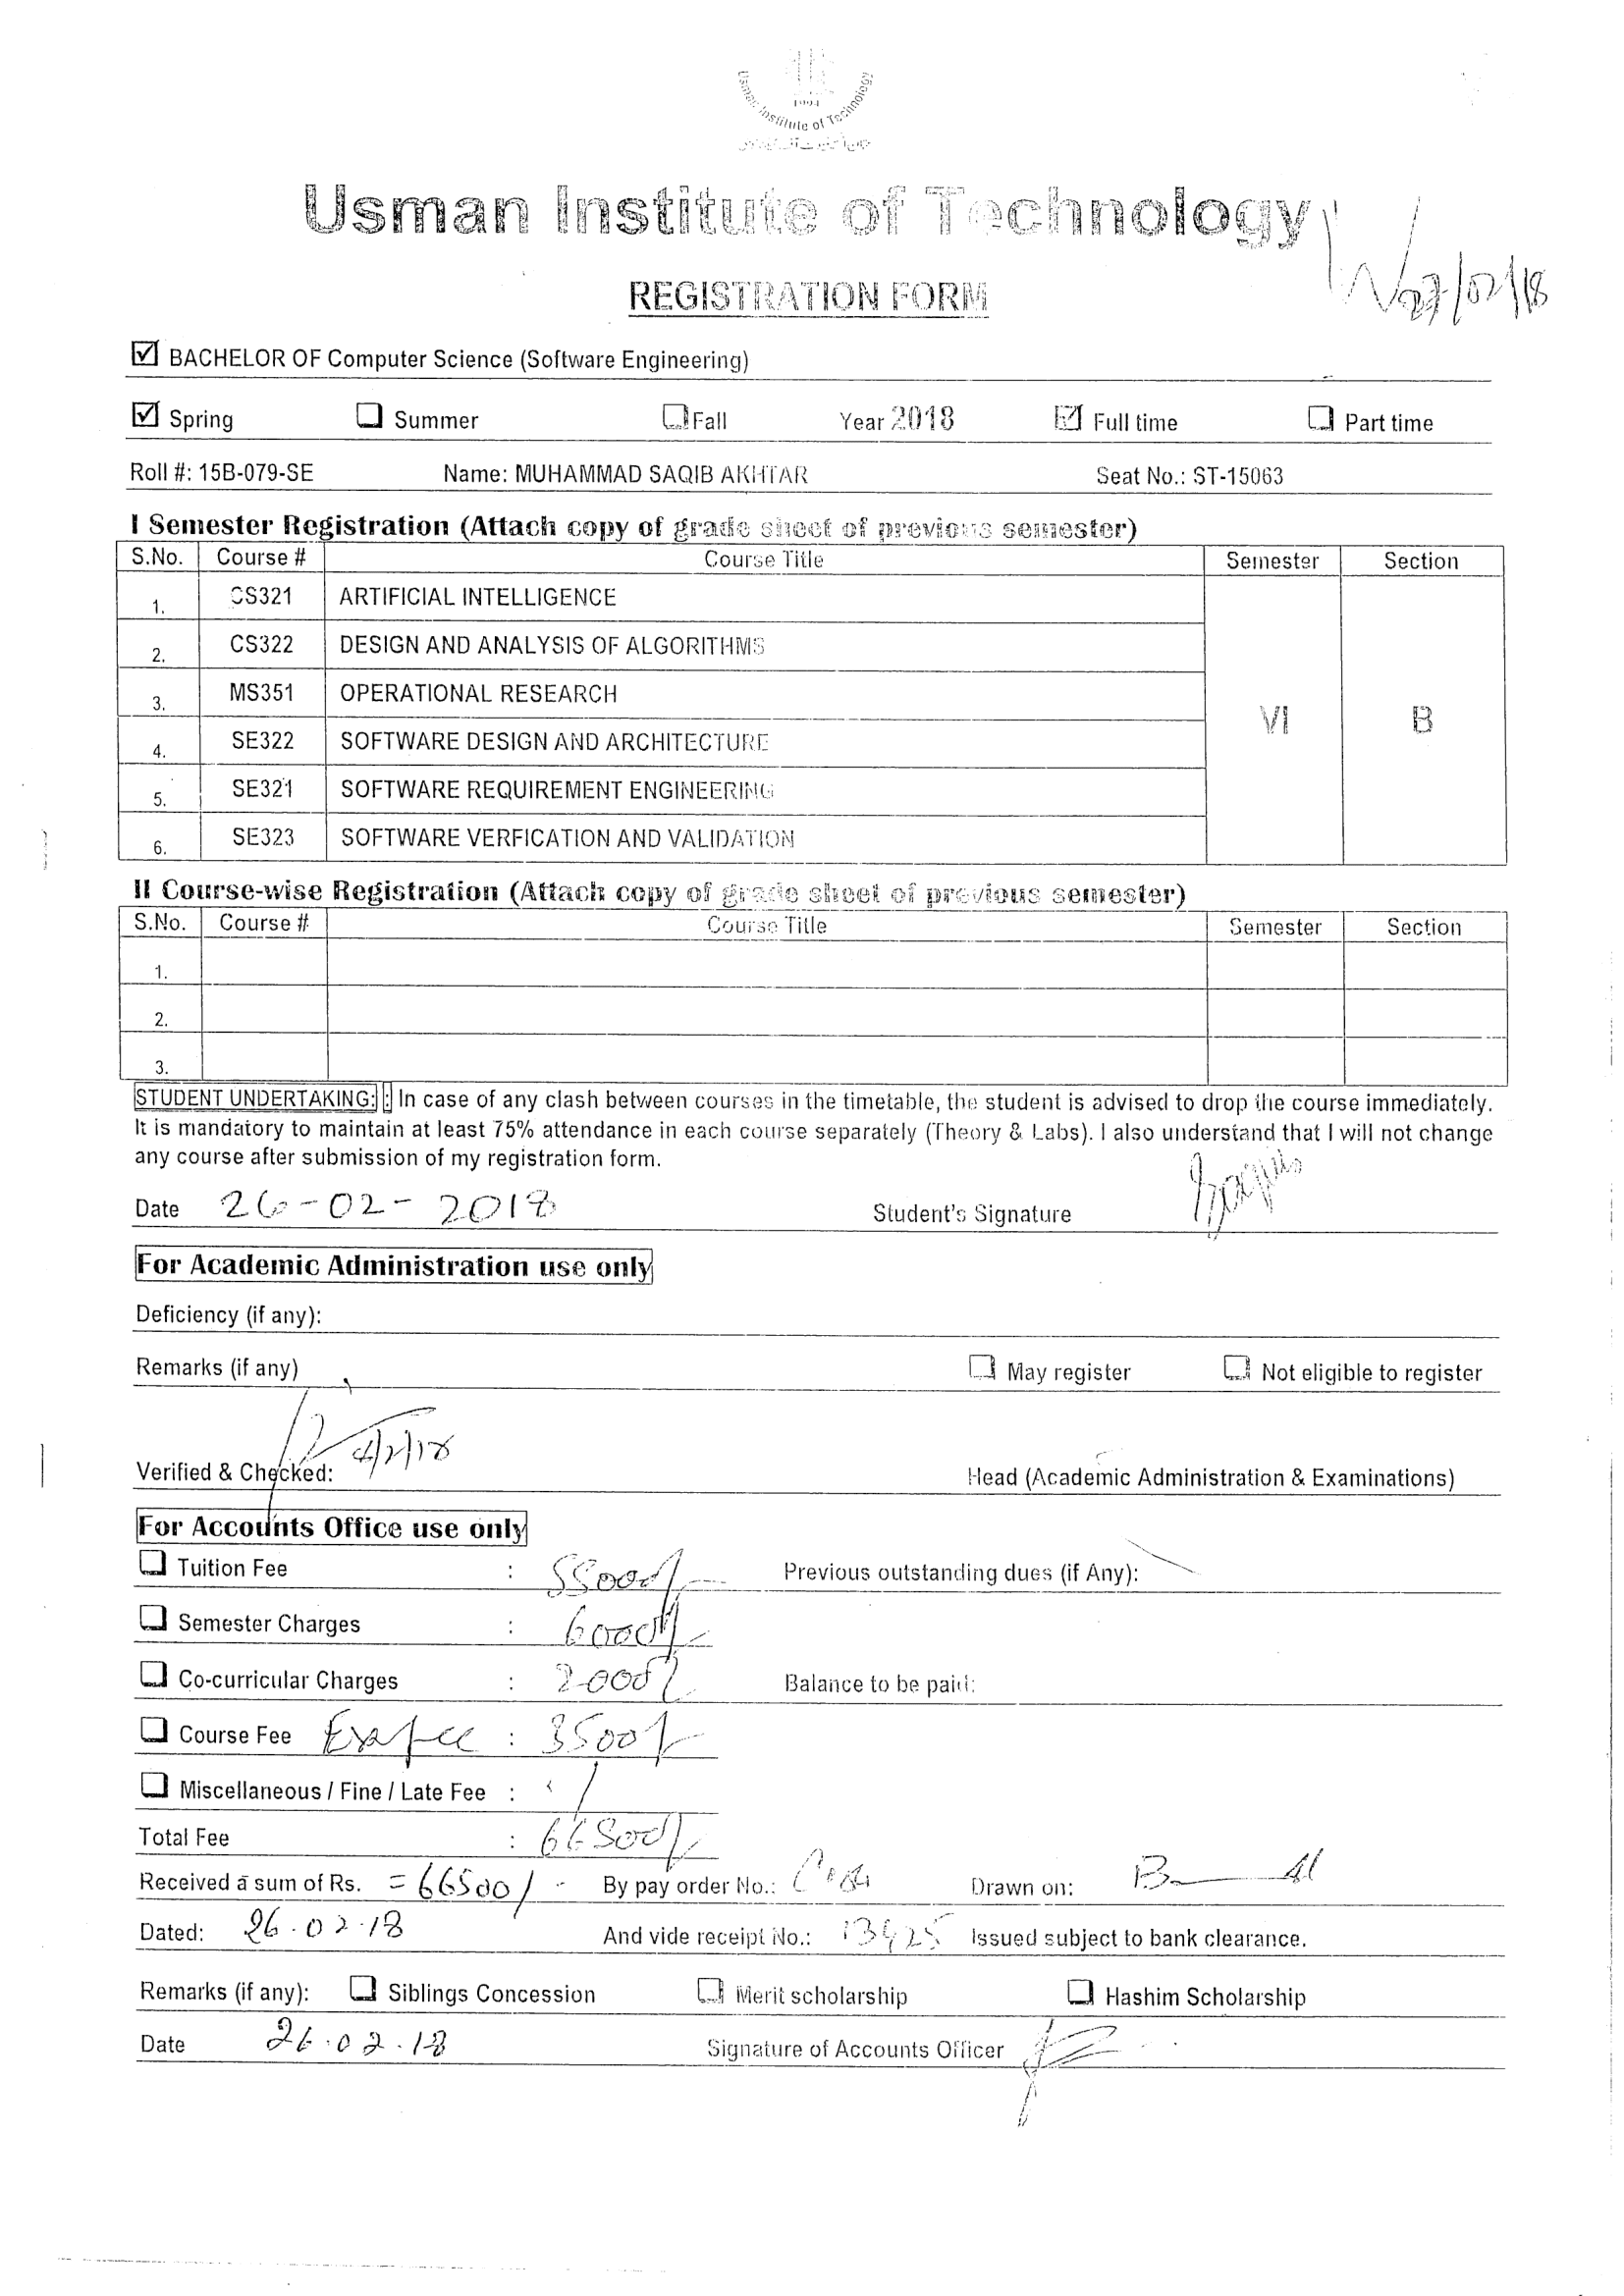 1994
Usman Institute of Technology
Usman Institute of Technology
REGISTRATION FORM
27/02/18
BACHELOR OF Computer Science (Software Engineering)
Spring Summer Fall Year 2018 Full time Part time
Roll #: 15B-079-SE Name: MUHAMMAD SAQIB AKHTAR Seat No.: ST-15063
I Semester Registration (Attach copy of grade sheet of previous semester)
S.No. Course # Course Title Semester Section
1. CS321 ARTIFICIAL INTELLIGENCE
2. CS322 DESIGN AND ANALYSIS OF ALGORITHMS
3. MS351 OPERATIONAL RESEARCH
VI B
4. SE322 SOFTWARE DESIGN AND ARCHITECTURE
5. SE321 SOFTWARE REQUIREMENT ENGINEERING
6. SE323 SOFTWARE VERFICATION AND VALIDATION
II Course-wise Registration (Attach copy of grade sheet of previous semester)
S.No. Course # Course Title Semester Section
1.
2.
3.
STUDENT UNDERTAKING: : In case of any clash between courses in the timetable, the student is advised to drop the course immediately.
It is mandatory to maintain at least 75% attendance in each course separately (Theory & Labs). I also understand that I will not change
any course after submission of my registration form.
Date 26-02-2018 Student's Signature Saqib
For Academic Administration use only
Deficiency (if any):
Remarks (if any) May register Not eligible to register
Verified & Checked: Head (Academic Administration & Examinations)
For Accounts Office use only
Tuition Fee : 55000/- Previous outstanding dues (if Any):
Semester Charges : 6000/-
Co-curricular Charges : 2000/- Balance to be paid:
Course Fee Ex fee : 3500/-
Miscellaneous / Fine / Late Fee :
Total Fee : 66500/-
Received a sum of Rs. =66500/- By pay order No.: Drawn on:
Dated: 26.02.18 And vide receipt No.: 13425 Issued subject to bank clearance.
Remarks (if any): Siblings Concession Merit scholarship Hashim Scholarship
Date 26.02.18 Signature of Accounts Officer